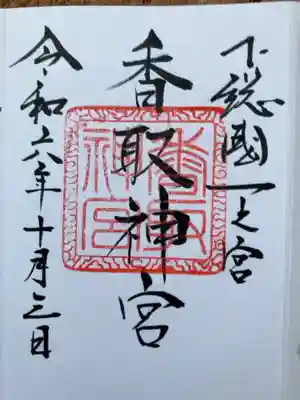 下総國一之宮
香取神宮
香取神宮
令和六年十月三日